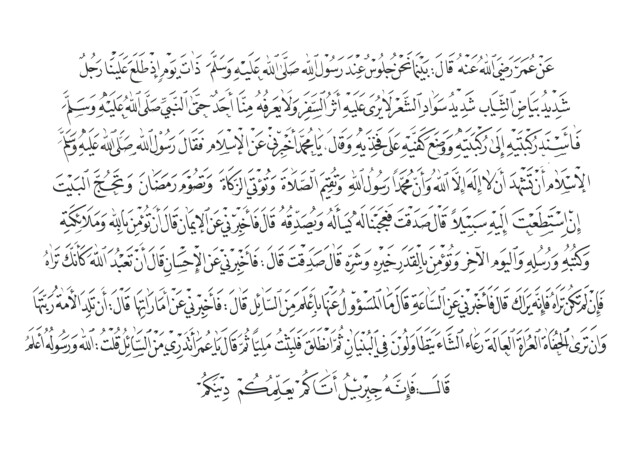 عَنْ عُمَرَ رَضِيَ اللهُ عَنْهُ قَالَ: بَيْنَمَا نَحْنُ جُلُوسٌ عِنْدَ رَسُوْلِ اللهِ صَلَّى اللهُ عَلَيْهِ وَسَلَّمَ ذَاتَ يَوْمٍ إِذْ طَلَعَ عَلَيْنَا رَجُلٌ
شَدِيْدُ بَيَاضِ الثِّيَابِ شَدِيْدُ سَوَادِ الشَّعْرِ لَا يُرَى عَلَيْهِ أَثَرُ السَّفَرِ وَلَا يَعْرِفُهُ مِنَّا أَحَدٌ حَتَّى النَّبِيِّ صَلَّى اللهُ عَلَيْهِ وَسَلَّمَ
فَأَسْنَدَ رُكْبَتَيْهِ إِلَى رُكْبَتَيْهِ وَوَضَعَ كَفَّيْهِ عَلَى فَخِذَيْهِ وَقَالَ. يَا مُحَمَّدُ أَخْبِرْنِيْ عَنِ الْإِسْلَامِ فَقَالَ رَسُوْلُ اللهِ صَلَّى اللهُ عَلَيْهِ وَسَلَّمَ
الْإِسْلَامُ أَنْ تَشْهَدَ أَنْ لَا إِلَهَ إِلَّا اللهُ وَأَنَّ مُحَمَّدًا رَسُولُ اللهِ وَتُقِيْمَ الصَّلَاةَ وَتُؤْتِيَ الزَّكَاةَ وَتَصُوْمَ رَمَضَانَ وَتَحُجَّ الْبَيْتَ
إِنِ اسْتَطَعْتَ إِلَيْهِ سَبِيْلاً قَالَ صَدَقْتَ فَعَجِبْنَا لَهُ يَسْأَلُهُ وَيُصَدِّقُهُ قَالَ فَأَخْبِرْنِيْ عَنِ الْإِيْمَانِ قَالَ أَنْ تُؤْمِنَ بِاللهِ وَمَلَائِكَتِهِ
وَكُتُبِهِ وَرُسُلِهِ وَالْيَوْمِ الْآخِرِ وَتُؤْمِنَ بِالْقَدَرِ خَيْرِهِ وَشَرِّهِ قَالَ صَدَقْتَ قَالَ: فَأَخْبِرْنِيْ عَنِ الْإِحْسَانِ قَالَ أَنْ تَعْبُدَ اللهَ كَأَنَّكَ تَرَاهُ
فَإِنْ لَمْ تَكُنْ تَرَاهُ فَإِنَّهُ يَرَاكَ قَالَ فَأَخْبِرْنِيْ عَنِ السَّاعَةِ قَالَ مَا الْمَسْؤُوْلُ عَنْهَا بِأَعْلَمَ مِنَ السَّائِلِ قَالَ: فَأَخْبِرْنِيْ عَنْ أَمَارَاتِهَا قَالَ: أَنْ تَلِدَ الْأَمَةُ رَبَّتَهَا
وَأَنْ تَرَى الْحُفَاةَ الْعُرَاةَ الْعَالَةَ رِعَاءَ الشَّاءِ يَتَطَاوَلُوْنَ فِي الْبُنْيَانِ ثُمَّ انْطَلَقَ فَلَبِثْتُ مَلِيًّا ثُمَّ قَالَ يَا عُمَرُ أَتَدْرِيْ مَنِ السَّائِلُ قُلْتُ: اللهُ وَرَسُوْلُهُ أَعْلَمُ
قَالَ: فَإِنَّهُ جِبْرِيْلُ أَتَاكُمْ يُعَلِّمُكُمْ دِيْنَكُمْ